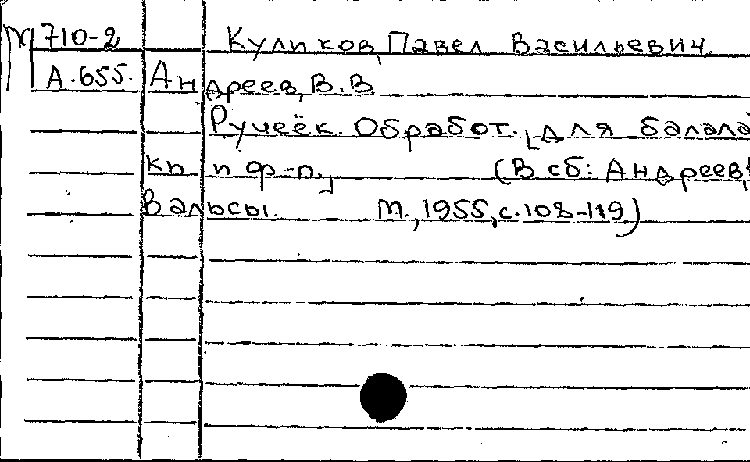 М 710-2 Куликов, Павел Васильевич.
А.655. Андреев, В.В
Ручеёк. Обработ. [для балала
ки и ф-п.] (В сб: Андреев,
Вальсы. М., 1955, с.108-119)